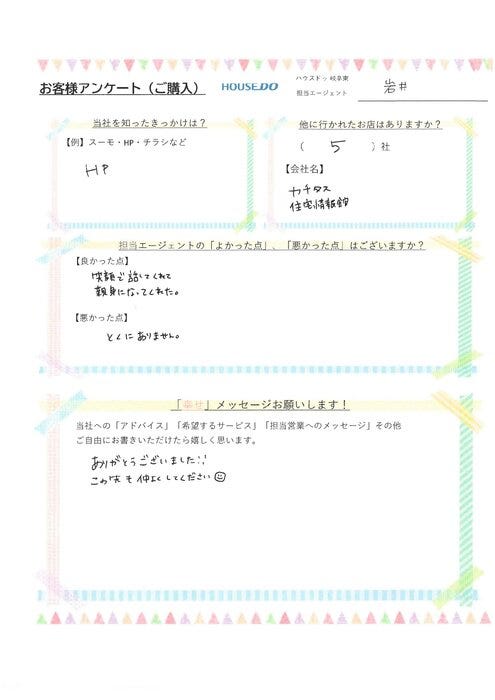 お客様アンケート（ご購入）
HOUSEDO
ハウスドゥ 岐阜東
担当エージェント
岩井
当社を知ったきっかけは？
【例】スーモ・HP・チラシなど
HP
他に行かれたお店はありますか？
（ 5 ）社
【会社名】
カチタス
住宅情報館
担当エージェントの「よかった点」、「悪かった点」はございますか？
【良かった点】
笑顔で話してくれて
親身になってくれた。
【悪かった点】
とくにありません。
「幸せ」メッセージお願いします！
当社への「アドバイス」「希望するサービス」「担当営業へのメッセージ」その他
ご自由にお書きいただけたら嬉しく思います。
ありがとうございました!!
も仲よくしてください